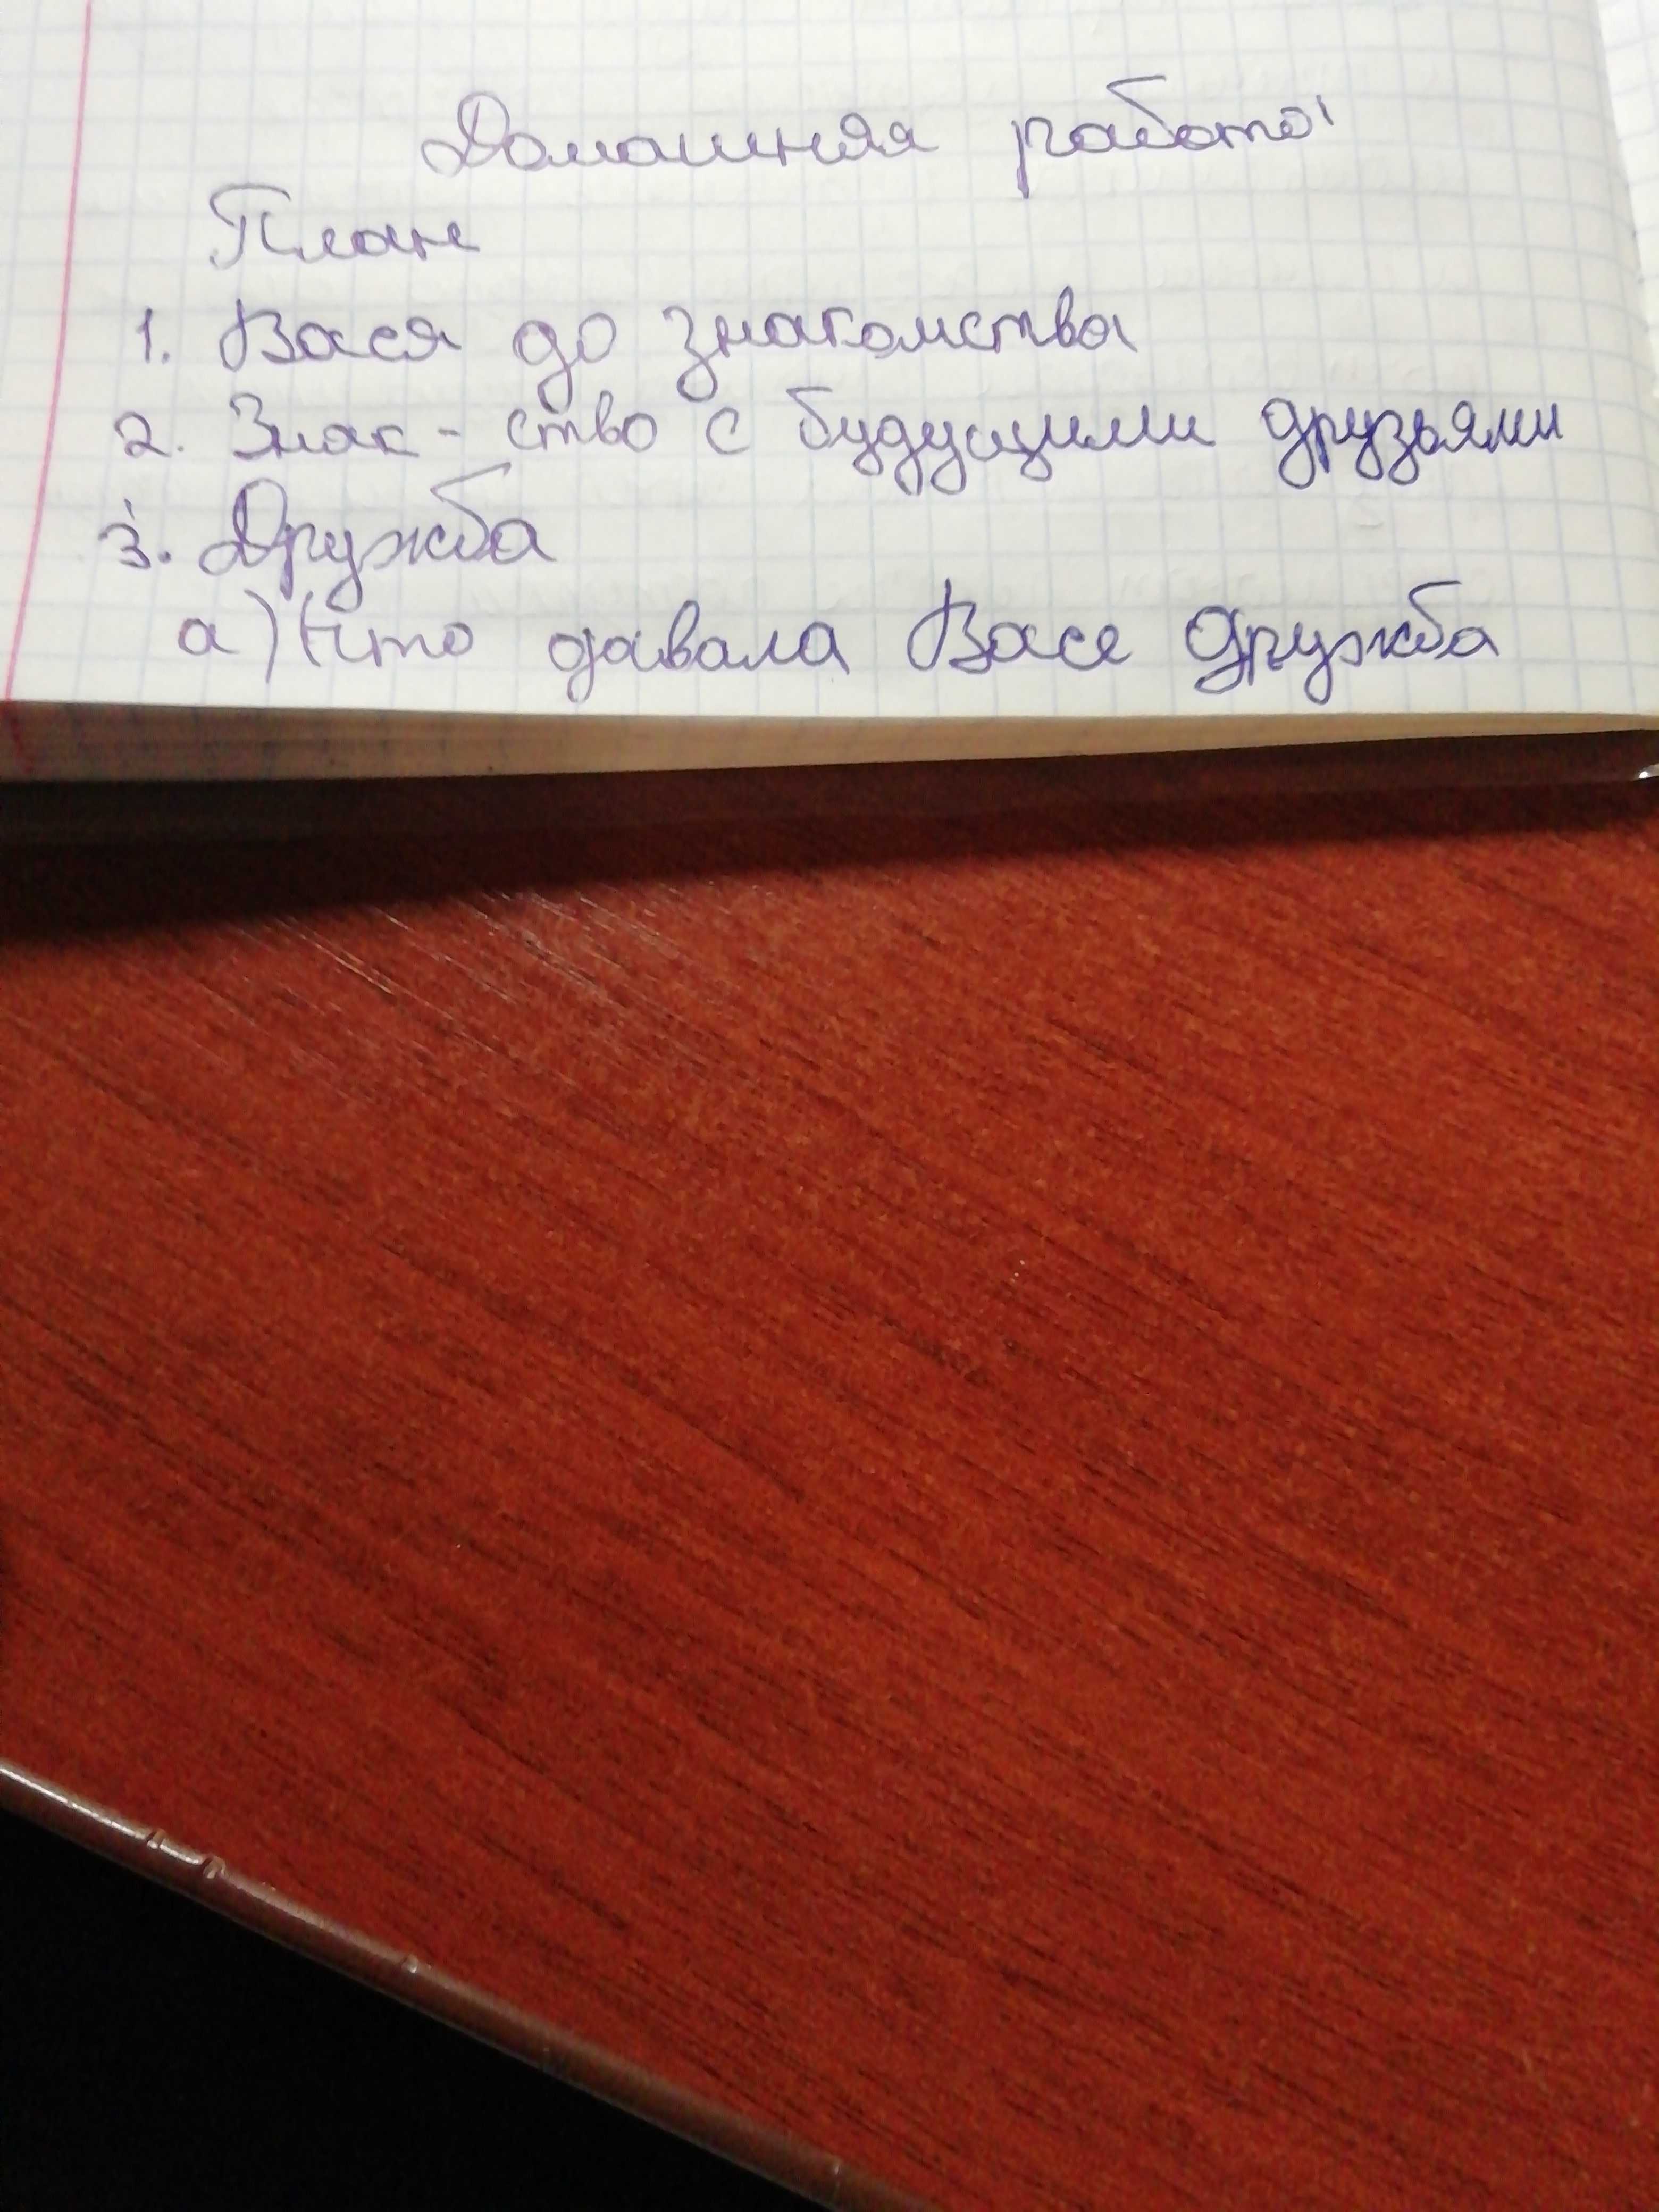 Домашняя работа
План
1. Вася до знакомства
2. Знак-ство с будущими друзьями
3. Дружба
а) Что давала Васе дружба